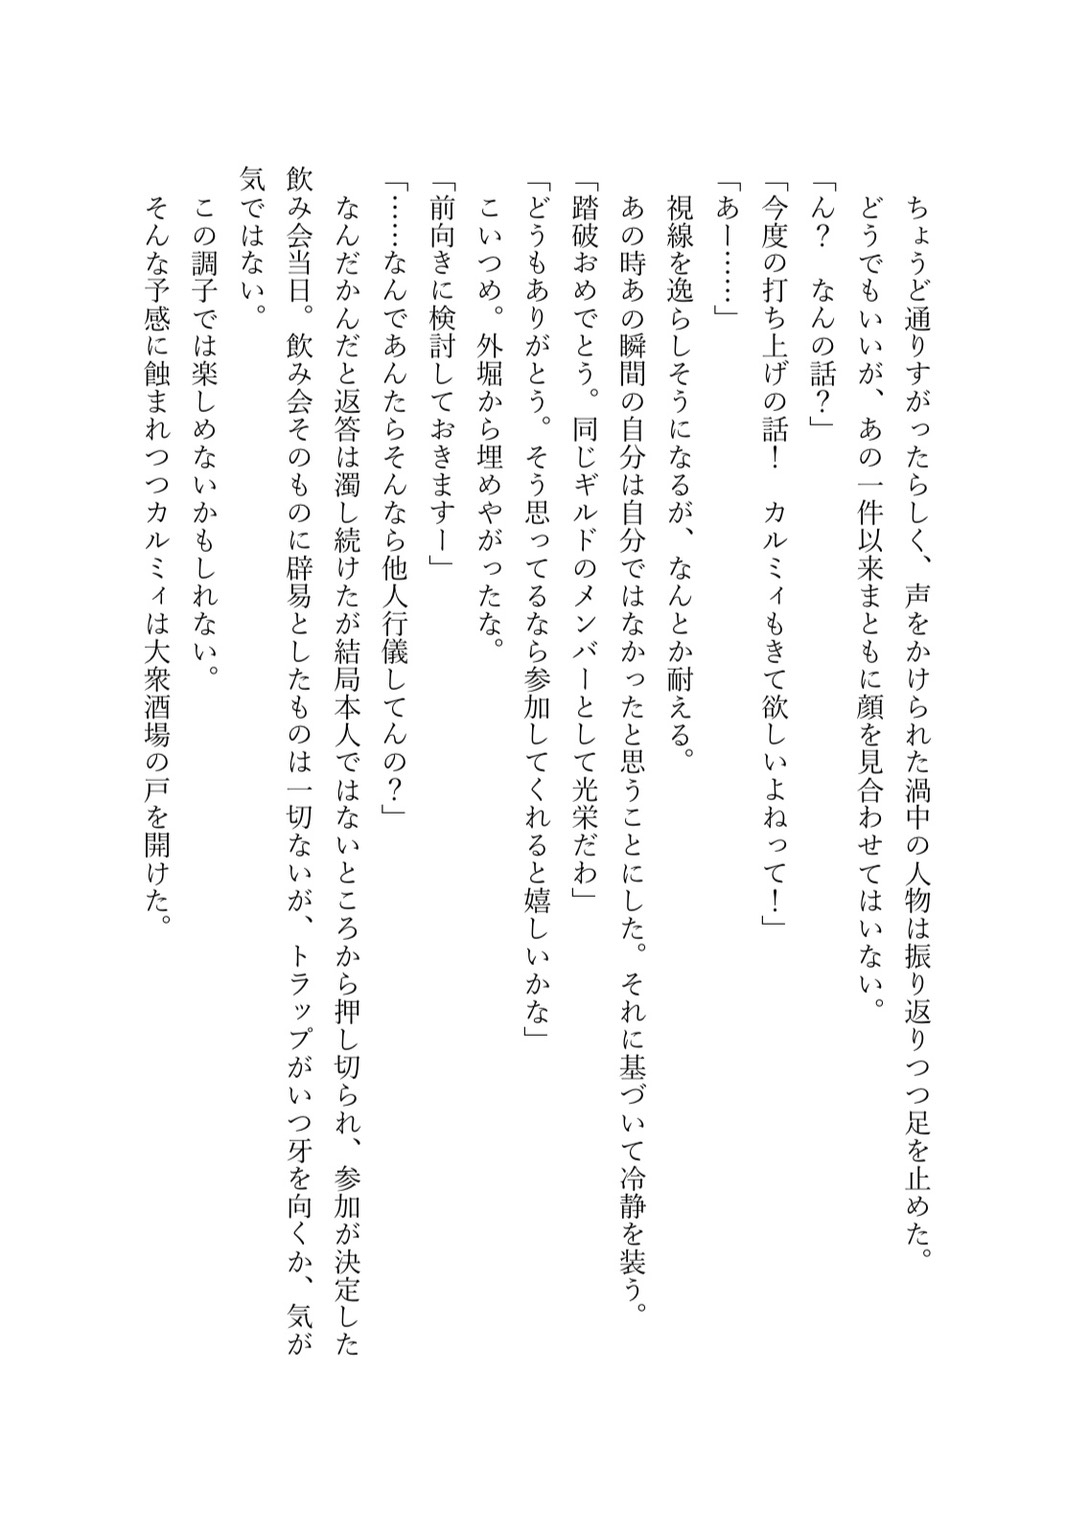 ちょうど通りすがったらしく、声をかけられた渦中の人物は振り返りつつ足を止めた。
　どうでもいいが、あの一件以来まともに顔を見合わせてはいない。
「ん？　なんの話？」
「今度の打ち上げの話！　カルミィもきて欲しいよねって！」
「あー……」
　視線を逸らしそうになるが、なんとか耐える。
　あの時あの瞬間の自分は自分ではなかったと思うことにした。それに基づいて冷静を装う。
「踏破おめでとう。同じギルドのメンバーとして光栄だわ」
「どうもありがとう。そう思ってるなら参加してくれると嬉しいかな」
　こいつめ。外堀から埋めやがったな。
「前向きに検討しておきますー」
「……なんであんたらそんなら他人行儀してんの？」
　なんだかんだと返答は濁し続けたが結局本人ではないところから押し切られ、参加が決定した
飲み会当日。飲み会そのものに辟易としたものは一切ないが、トラップがいつ牙を向くか、気が
気ではない。
　この調子では楽しめないかもしれない。
　そんな予感に蝕まれつつカルミィは大衆酒場の戸を開けた。